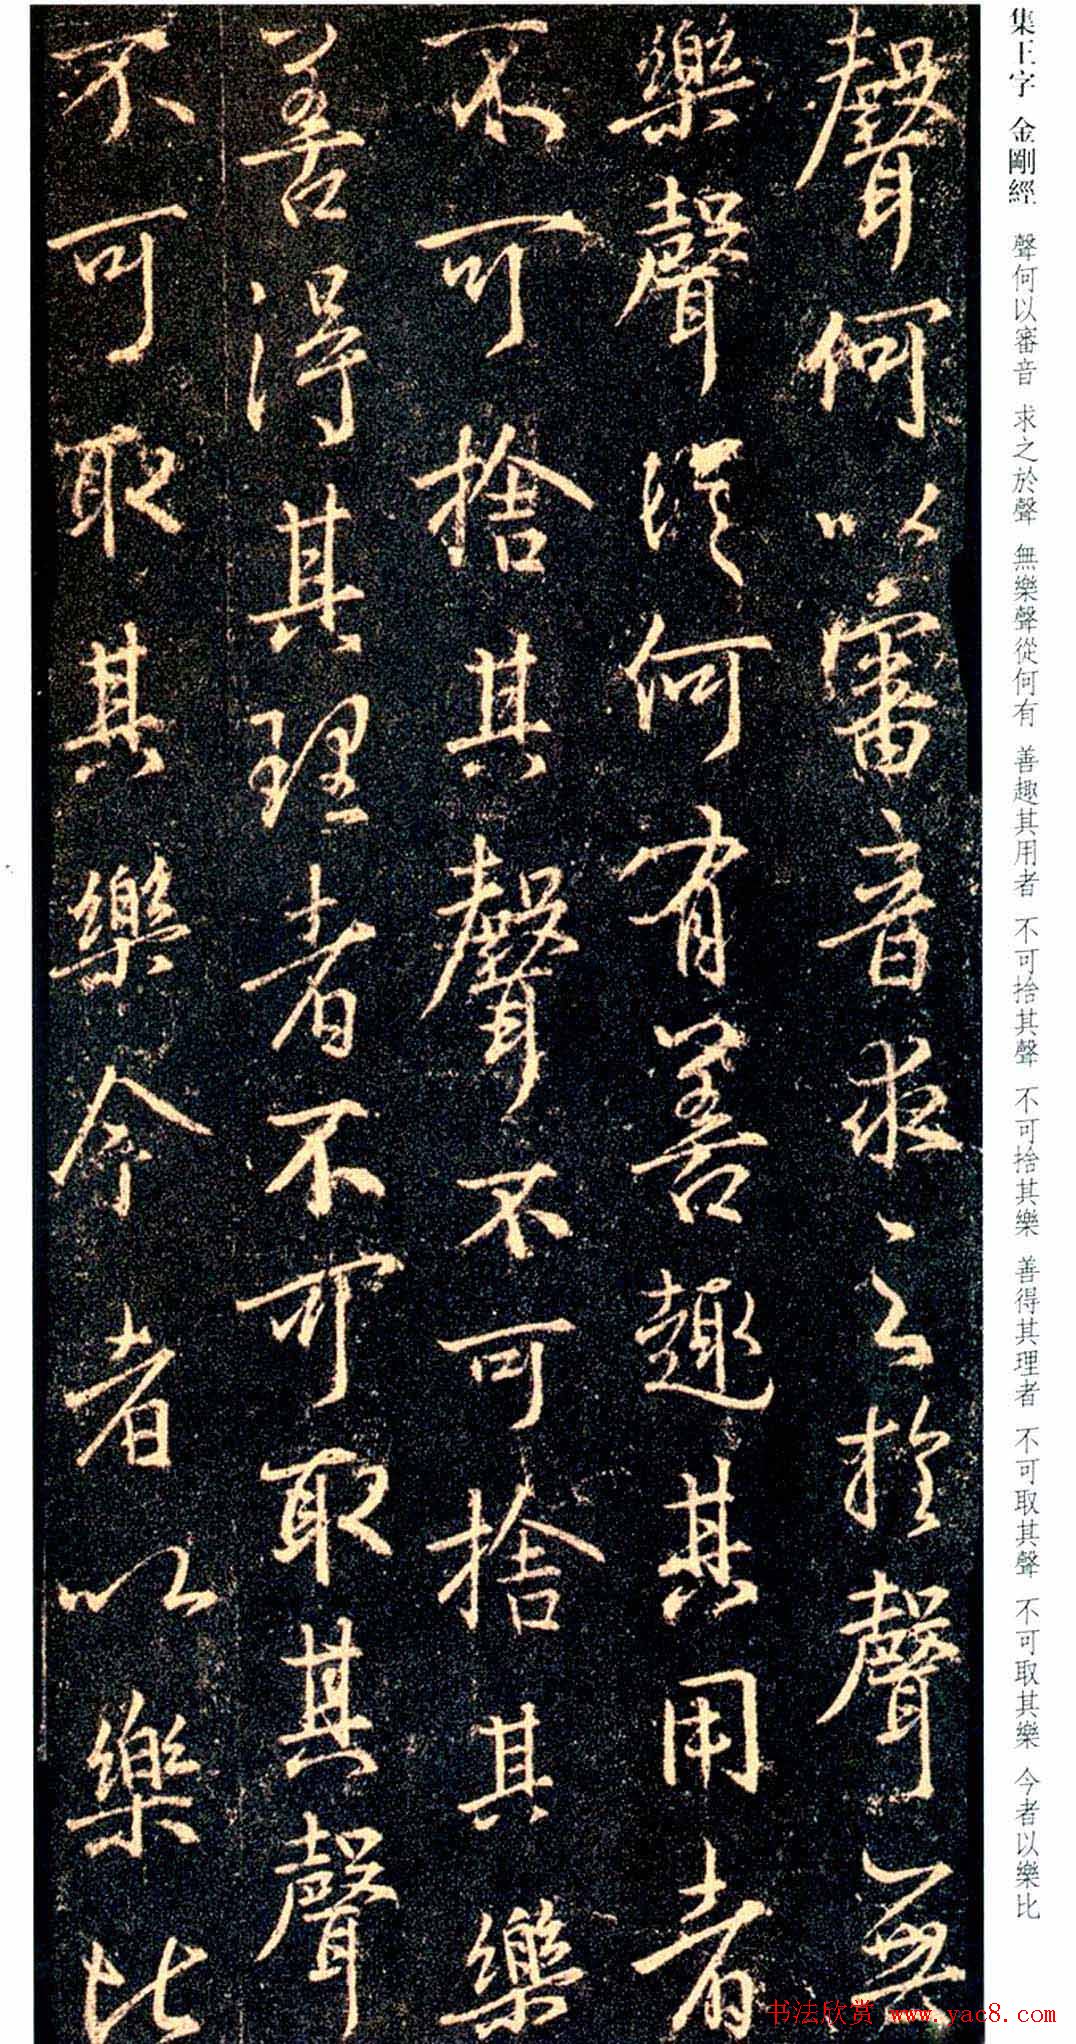 集王字 金剛經 聲何以審音 求之於聲 無樂聲從何有 善趣其用者 不可拾其聲 不可拾其樂 善得其理者 不可取其聲 不可取其樂 今者以樂比
聲何以審音求之於聲無
樂聲從何有善趣其用者
不可捨其聲不可捨其樂
善得其理者不可取其聲
不可取其樂今者以樂比
书法欣赏 www.yac8.com